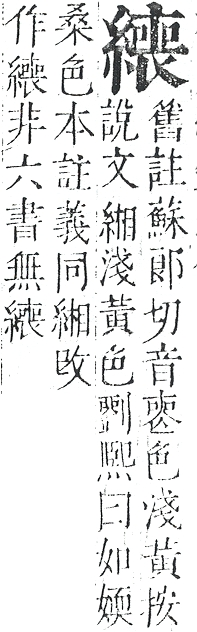 舊註蘇郎切音喪色淺黃按
說文緗淺黃色劉熙曰如媆
桑色本註義同緗改
作非六書無